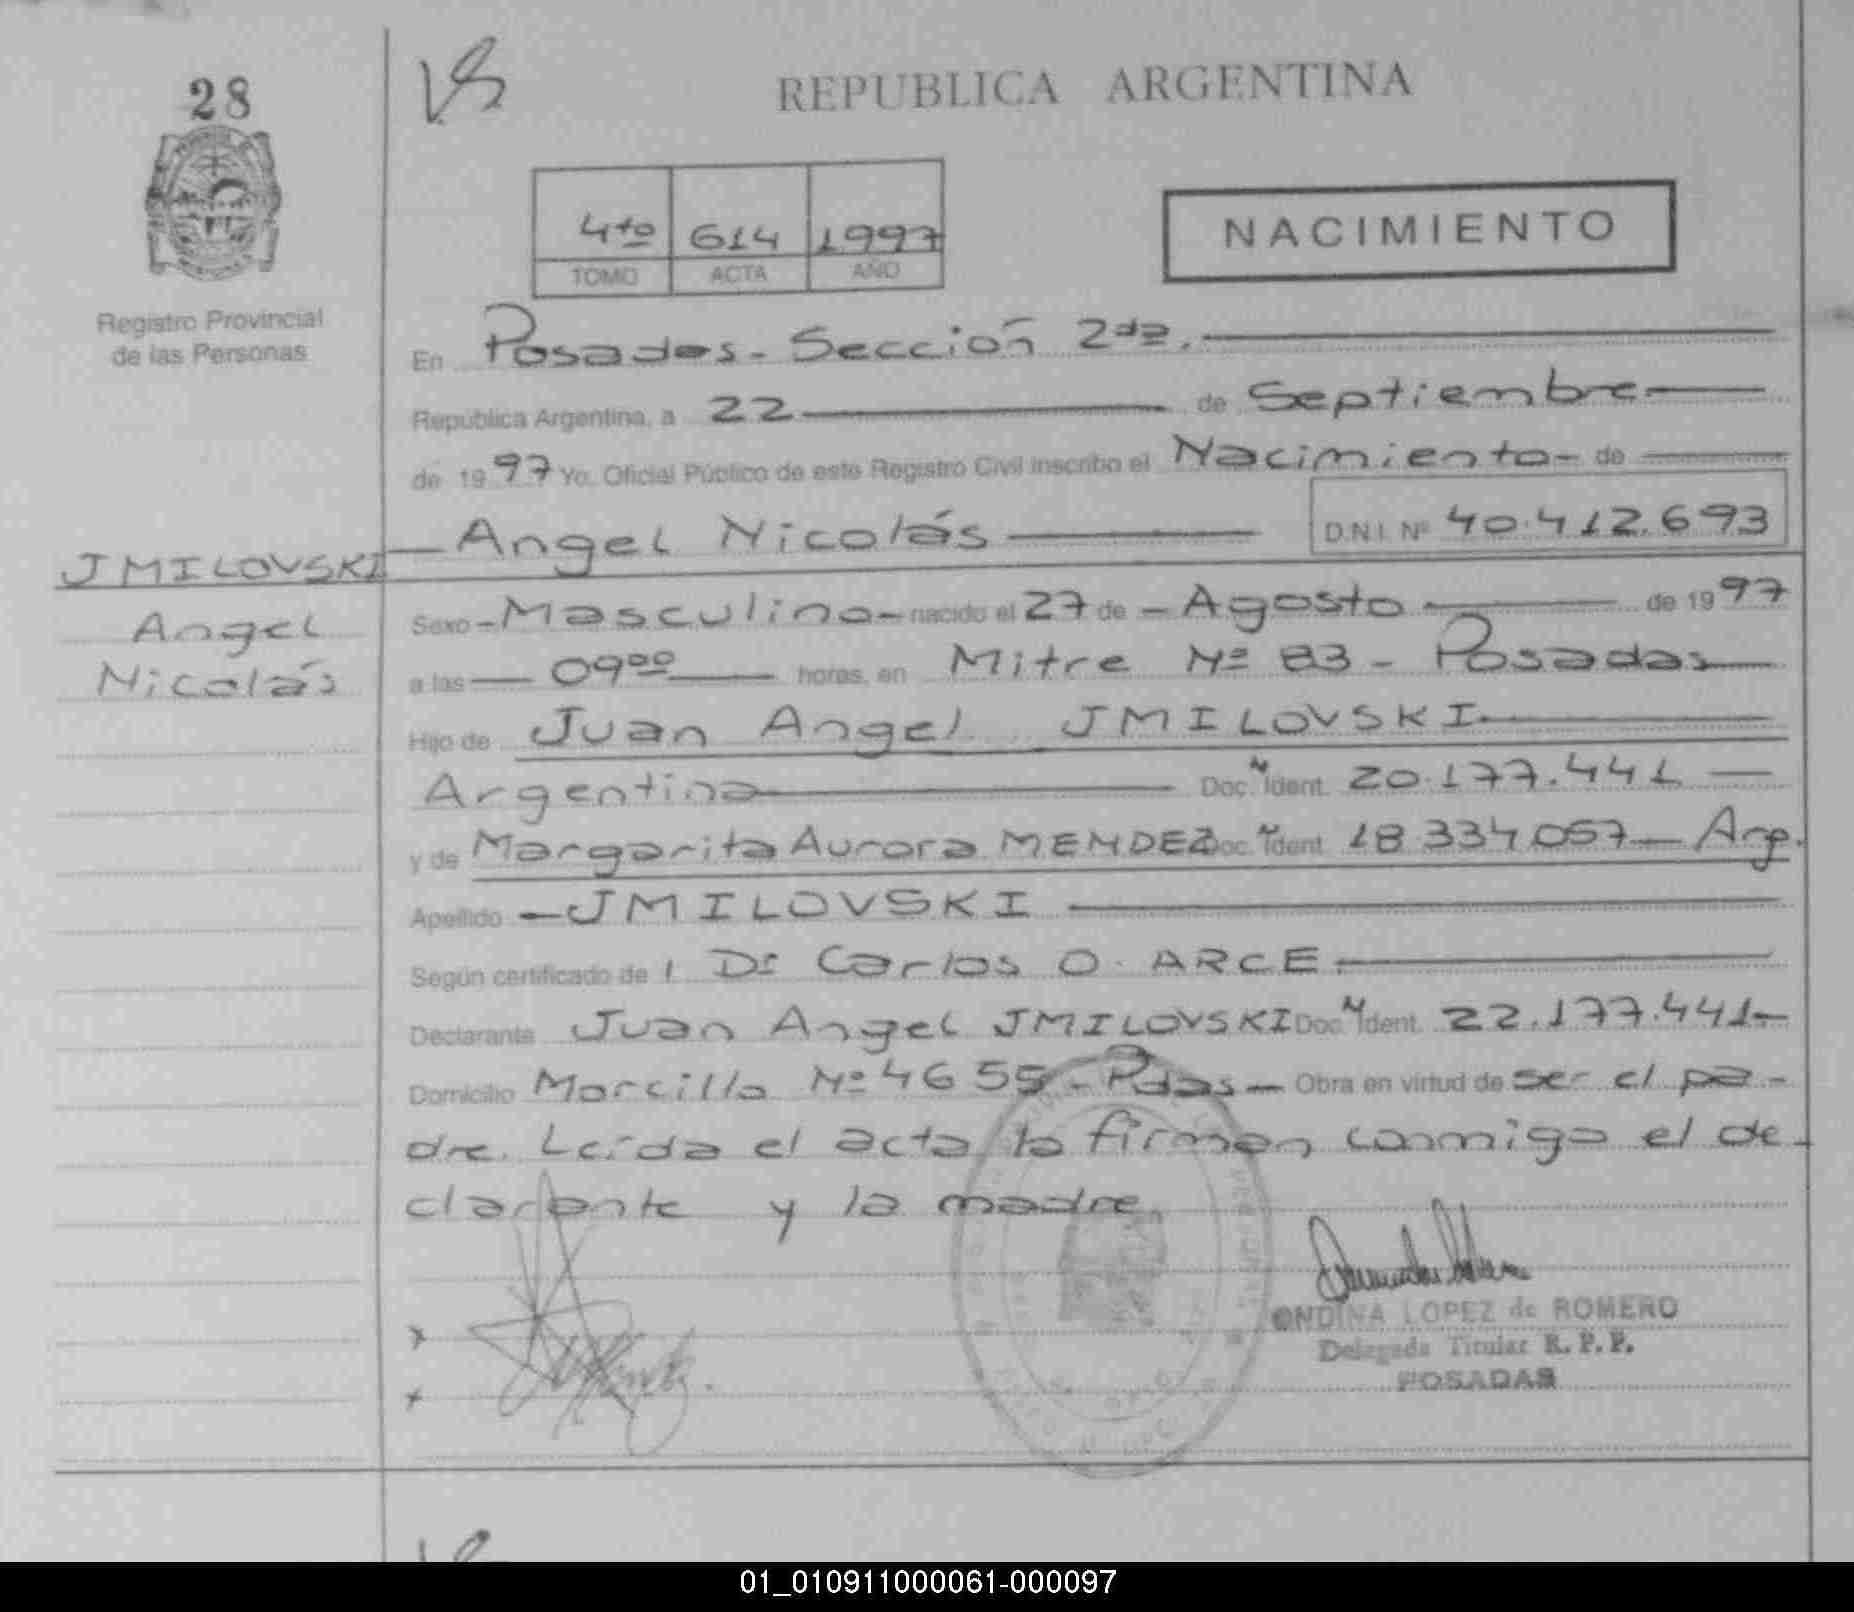 28
REPUBLICA ARGENTINA
4to 614 1997
TOMO ACTA AÑO
NACIMIENTO
Registro Provincial
de las Personas
En Posadas - Sección 2da.
República Argentina, a 22 de Septiembre
de 1997 Yo, Oficial Público de este Registro Civil inscribo el Nacimiento - de
Angel Nicolás D.N.I. Nº 40.412.693
JMILOVSKI
Angel
Nicolás
Sexo - Masculino - nacido el 27 de - Agosto de 1997
a las 09 00 horas, en Mitre Nº 83 - Posadas
Hijo de Juan Angel JMILOVSKI
Argentina Doc. N Ident. 20.177.441
y de Margarita Aurora MENDEZ Doc. N Ident. 18.334.057 - Arg.
Apellido - JMILOVSKI
Según certificado de l Dr Carlos O. ARCE.
Declarante Juan Angel JMILOVSKI Doc. N Ident. 22.177.441 -
Domicilio Morcillo Nº 4655 - Pdas - Obra en virtud de ser el pa-
dre. Leída el acta la firman conmigo el de-
clarante y la madre
x
x
ONDINA LOPEZ de ROMERO
Delegada Titular R. P. P.
POSADAS
01_010911000061-000097